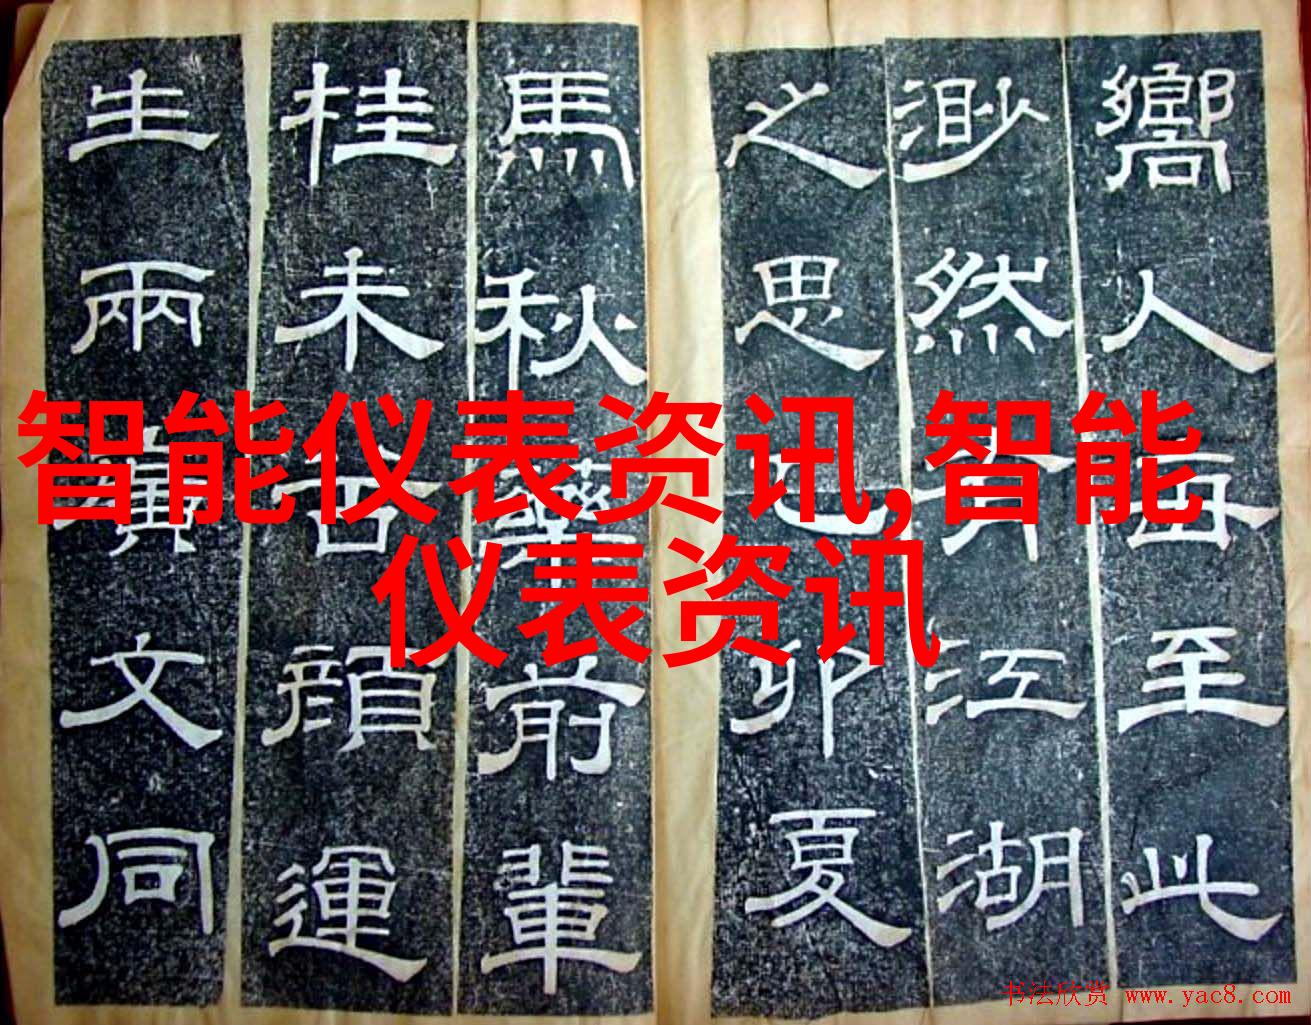 嚮人至此
渺然江湖
之思己卯夏
馬秋藥前輩
桂未谷顏運
生兩廣文同
智能仪表资讯,智能
仪表资讯
书法欣赏 www.yac8.com